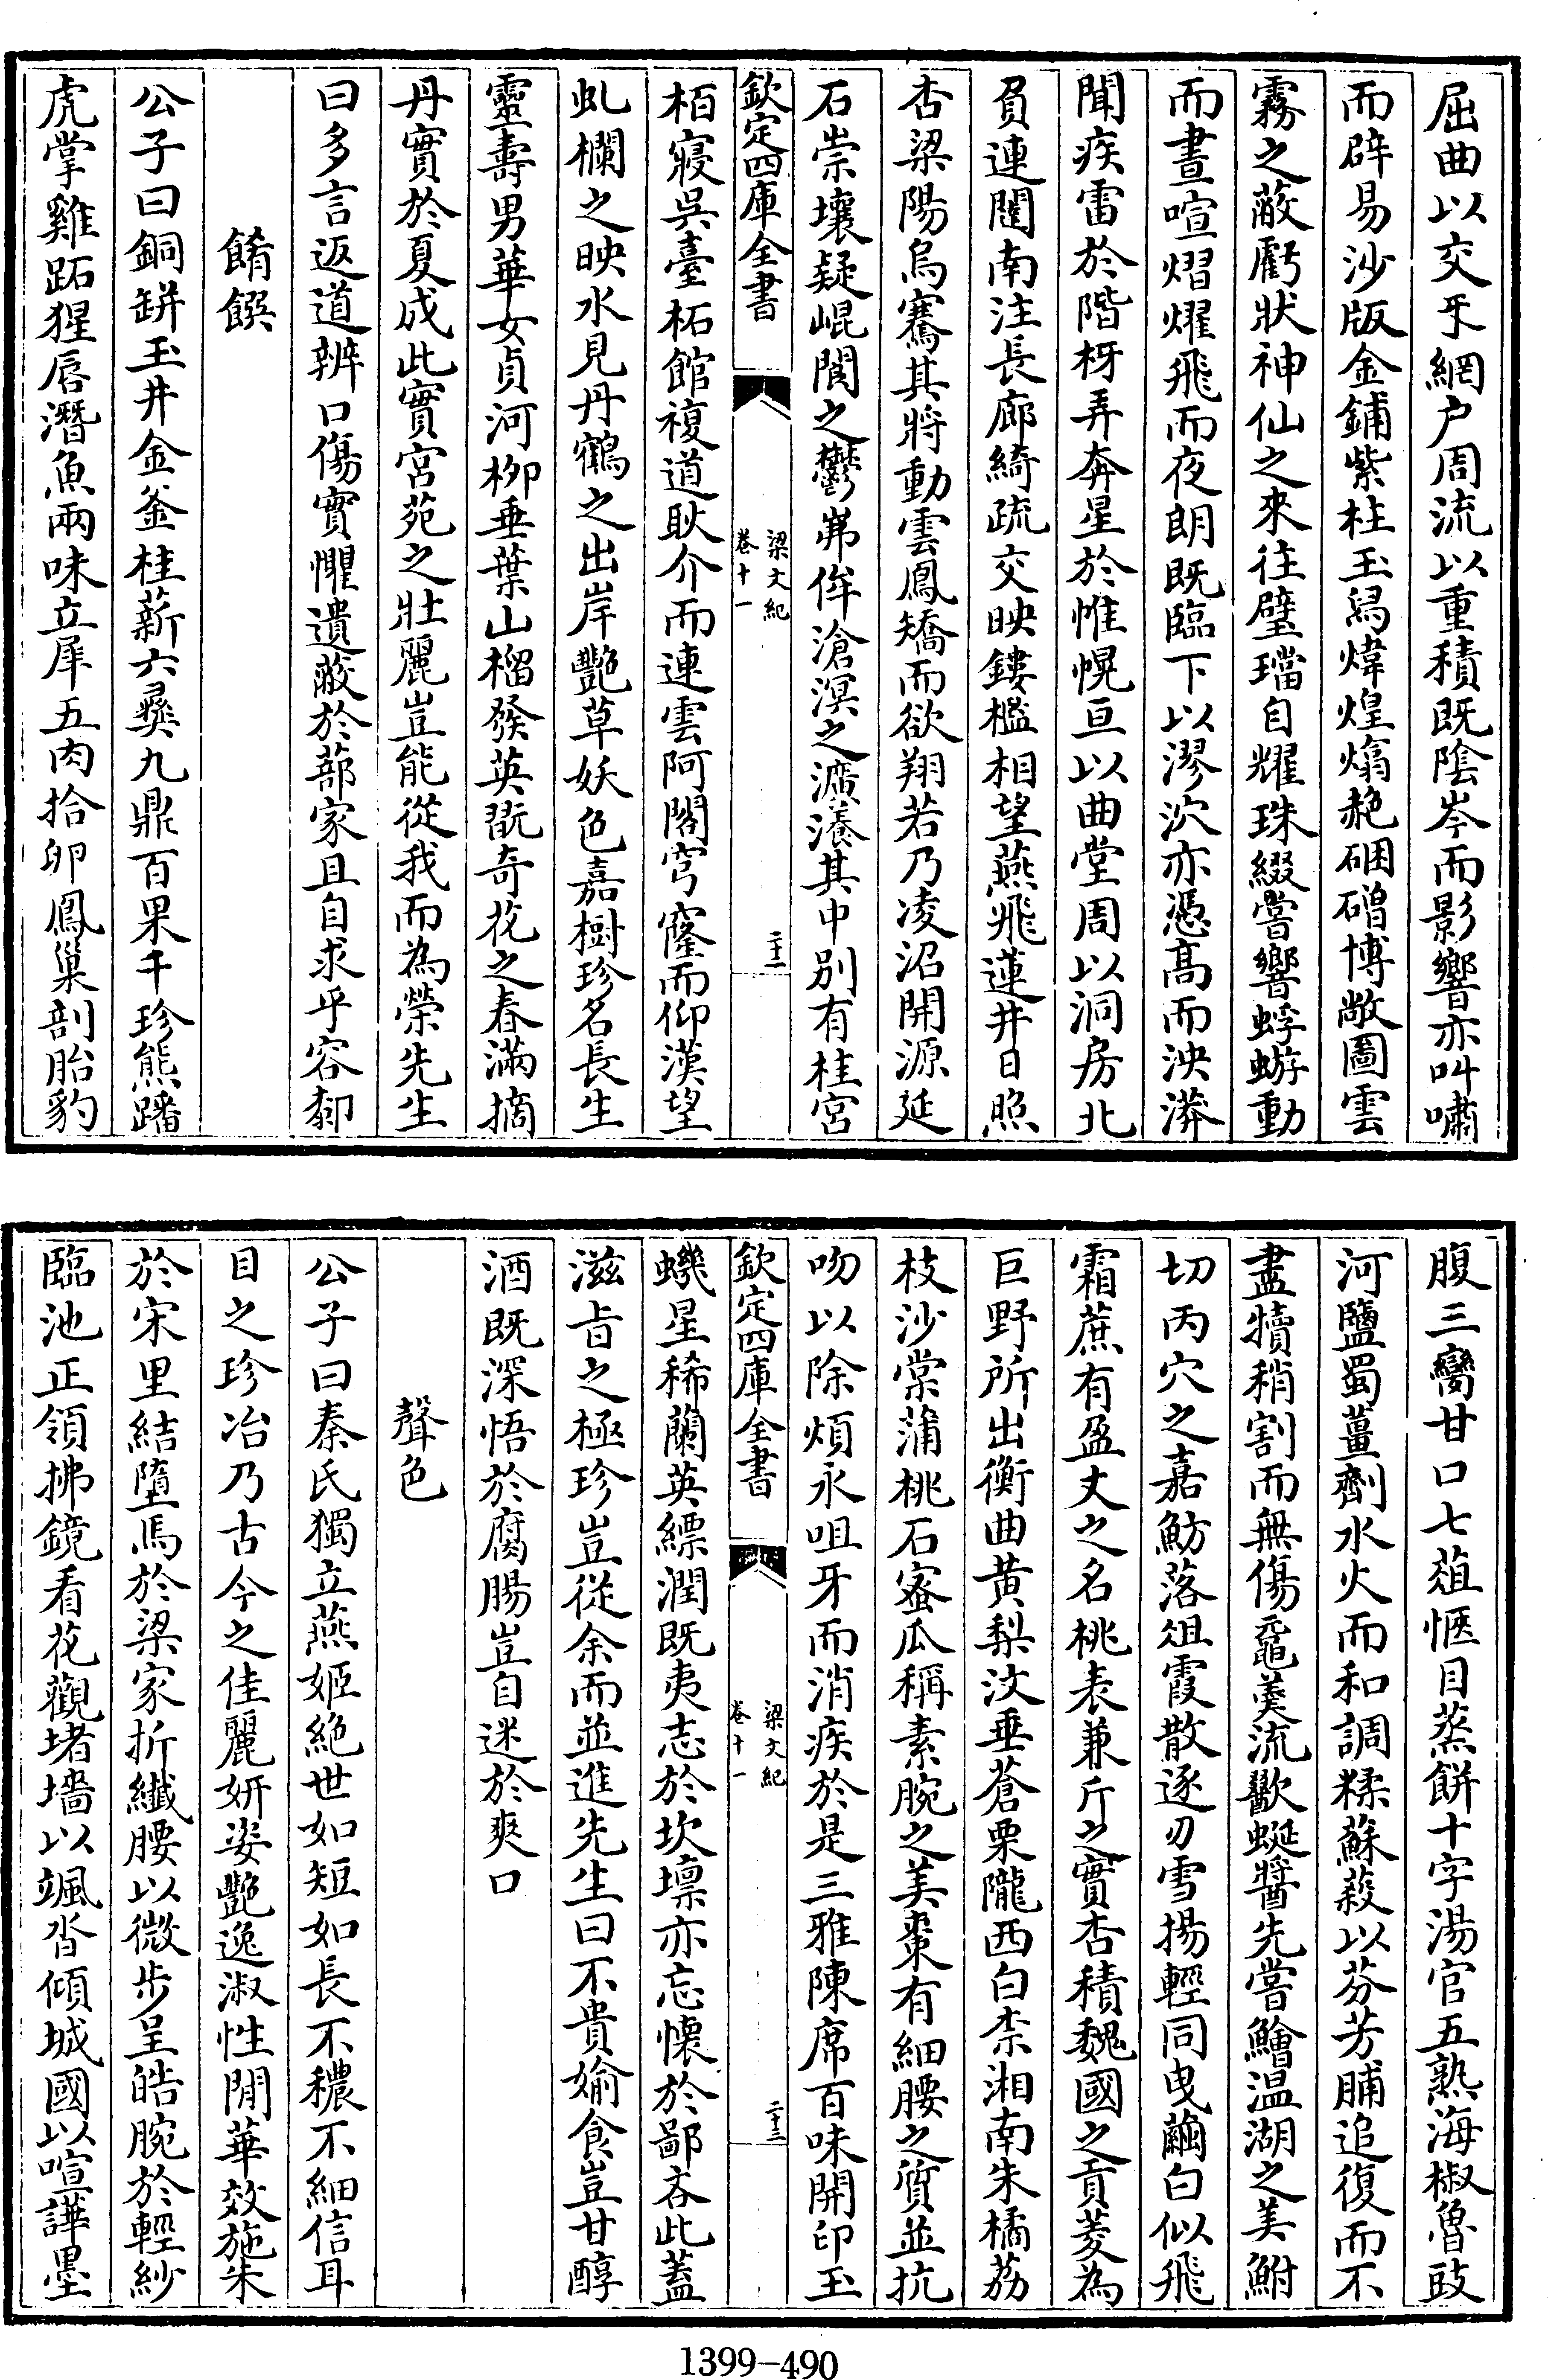 屈曲以交乎網户周流以重積既陰岑而影響亦叫嘯
而辟易沙版金鋪紫柱玉舄煒煌熻赩硱磳博敞圖雲
霧之蔽虧狀神仙之來往璧璫自耀珠綴嘗響蜉蝣動
而晝喧熠燿飛而夜朗既臨下以漻泬亦憑髙而泱漭
聞疾雷於階枅弄奔星於帷幌亘以曲堂周以洞房北
負連闥南注長廊綺疏交映鏤檻相望燕飛蓮井日照
杏梁陽烏騫其將動雲鳳矯而欲翔若乃凌沼開源延
石崇壤疑崐閬之鬱岪侔滄溟之瀇瀁其中别有桂宮
欽定四庫全書
梁文紀
卷十一
二十二
栢寢吳臺柘館複道耿介而連雲阿閣穹窿而仰漢望
虬欄之映水見丹鶴之出岸豔草妖色嘉樹珍名長生
靈壽男華女貞河栁垂葉山榴發英翫竒花之春滿摘
丹實於夏成此實宮苑之壯麗豈能從我而為榮先生
曰多言返道辨口傷實懼遺蔽於蔀家且自求乎容䣛
餚饌
公子曰銅缾玉井金釜桂薪六彞九鼎百果千珍熊蹯
虎掌雞跖猩唇潛魚兩味立犀五肉拾卵鳳巢剖胎豹
腹三臠甘口七葅愜目蒸餅十字湯官五熟海椒魯豉
河鹽蜀薑劑水火而和調糅蘇蔱以芬芳脯追復而不
盡犢稍割而無傷黿羹流歠蜒醬先嘗鱠温湖之美鮒
切丙穴之嘉魴落俎霞散逐刃雪揚輕同曳繭白似飛
霜蔗有盈丈之名桃表兼斤之實杏積魏國之貢菱為
巨野所出衡曲黄梨汶垂蒼栗隴西白柰湘南朱橘荔
枝沙棠蒲桃石蜜瓜稱素腕之美棗有細腰之質並抗
吻以除煩永咀牙而消疾於是三雅陳席百味開印玉
欽定四庫全書
梁文紀
卷十一
二十三
蟣星稀蘭英縹潤既夷志於坎壈亦忘懷於鄙吝此蓋
滋旨之極珍豈從余而並進先生曰不貴婾食豈甘醇
酒既深悟於腐腸豈自迷於爽口
聲色
公子曰秦氏獨立燕姬絶世如短如長不穠不細信耳
目之珍冶乃古今之佳麗妍姿豔逸淑性閒華效施朱
於宋里結墮馬於梁家折纖腰以微步呈皓腕於輕紗
臨池正領拂鏡看花觀堵墻以颯沓傾城國以喧譁墨
1399-490